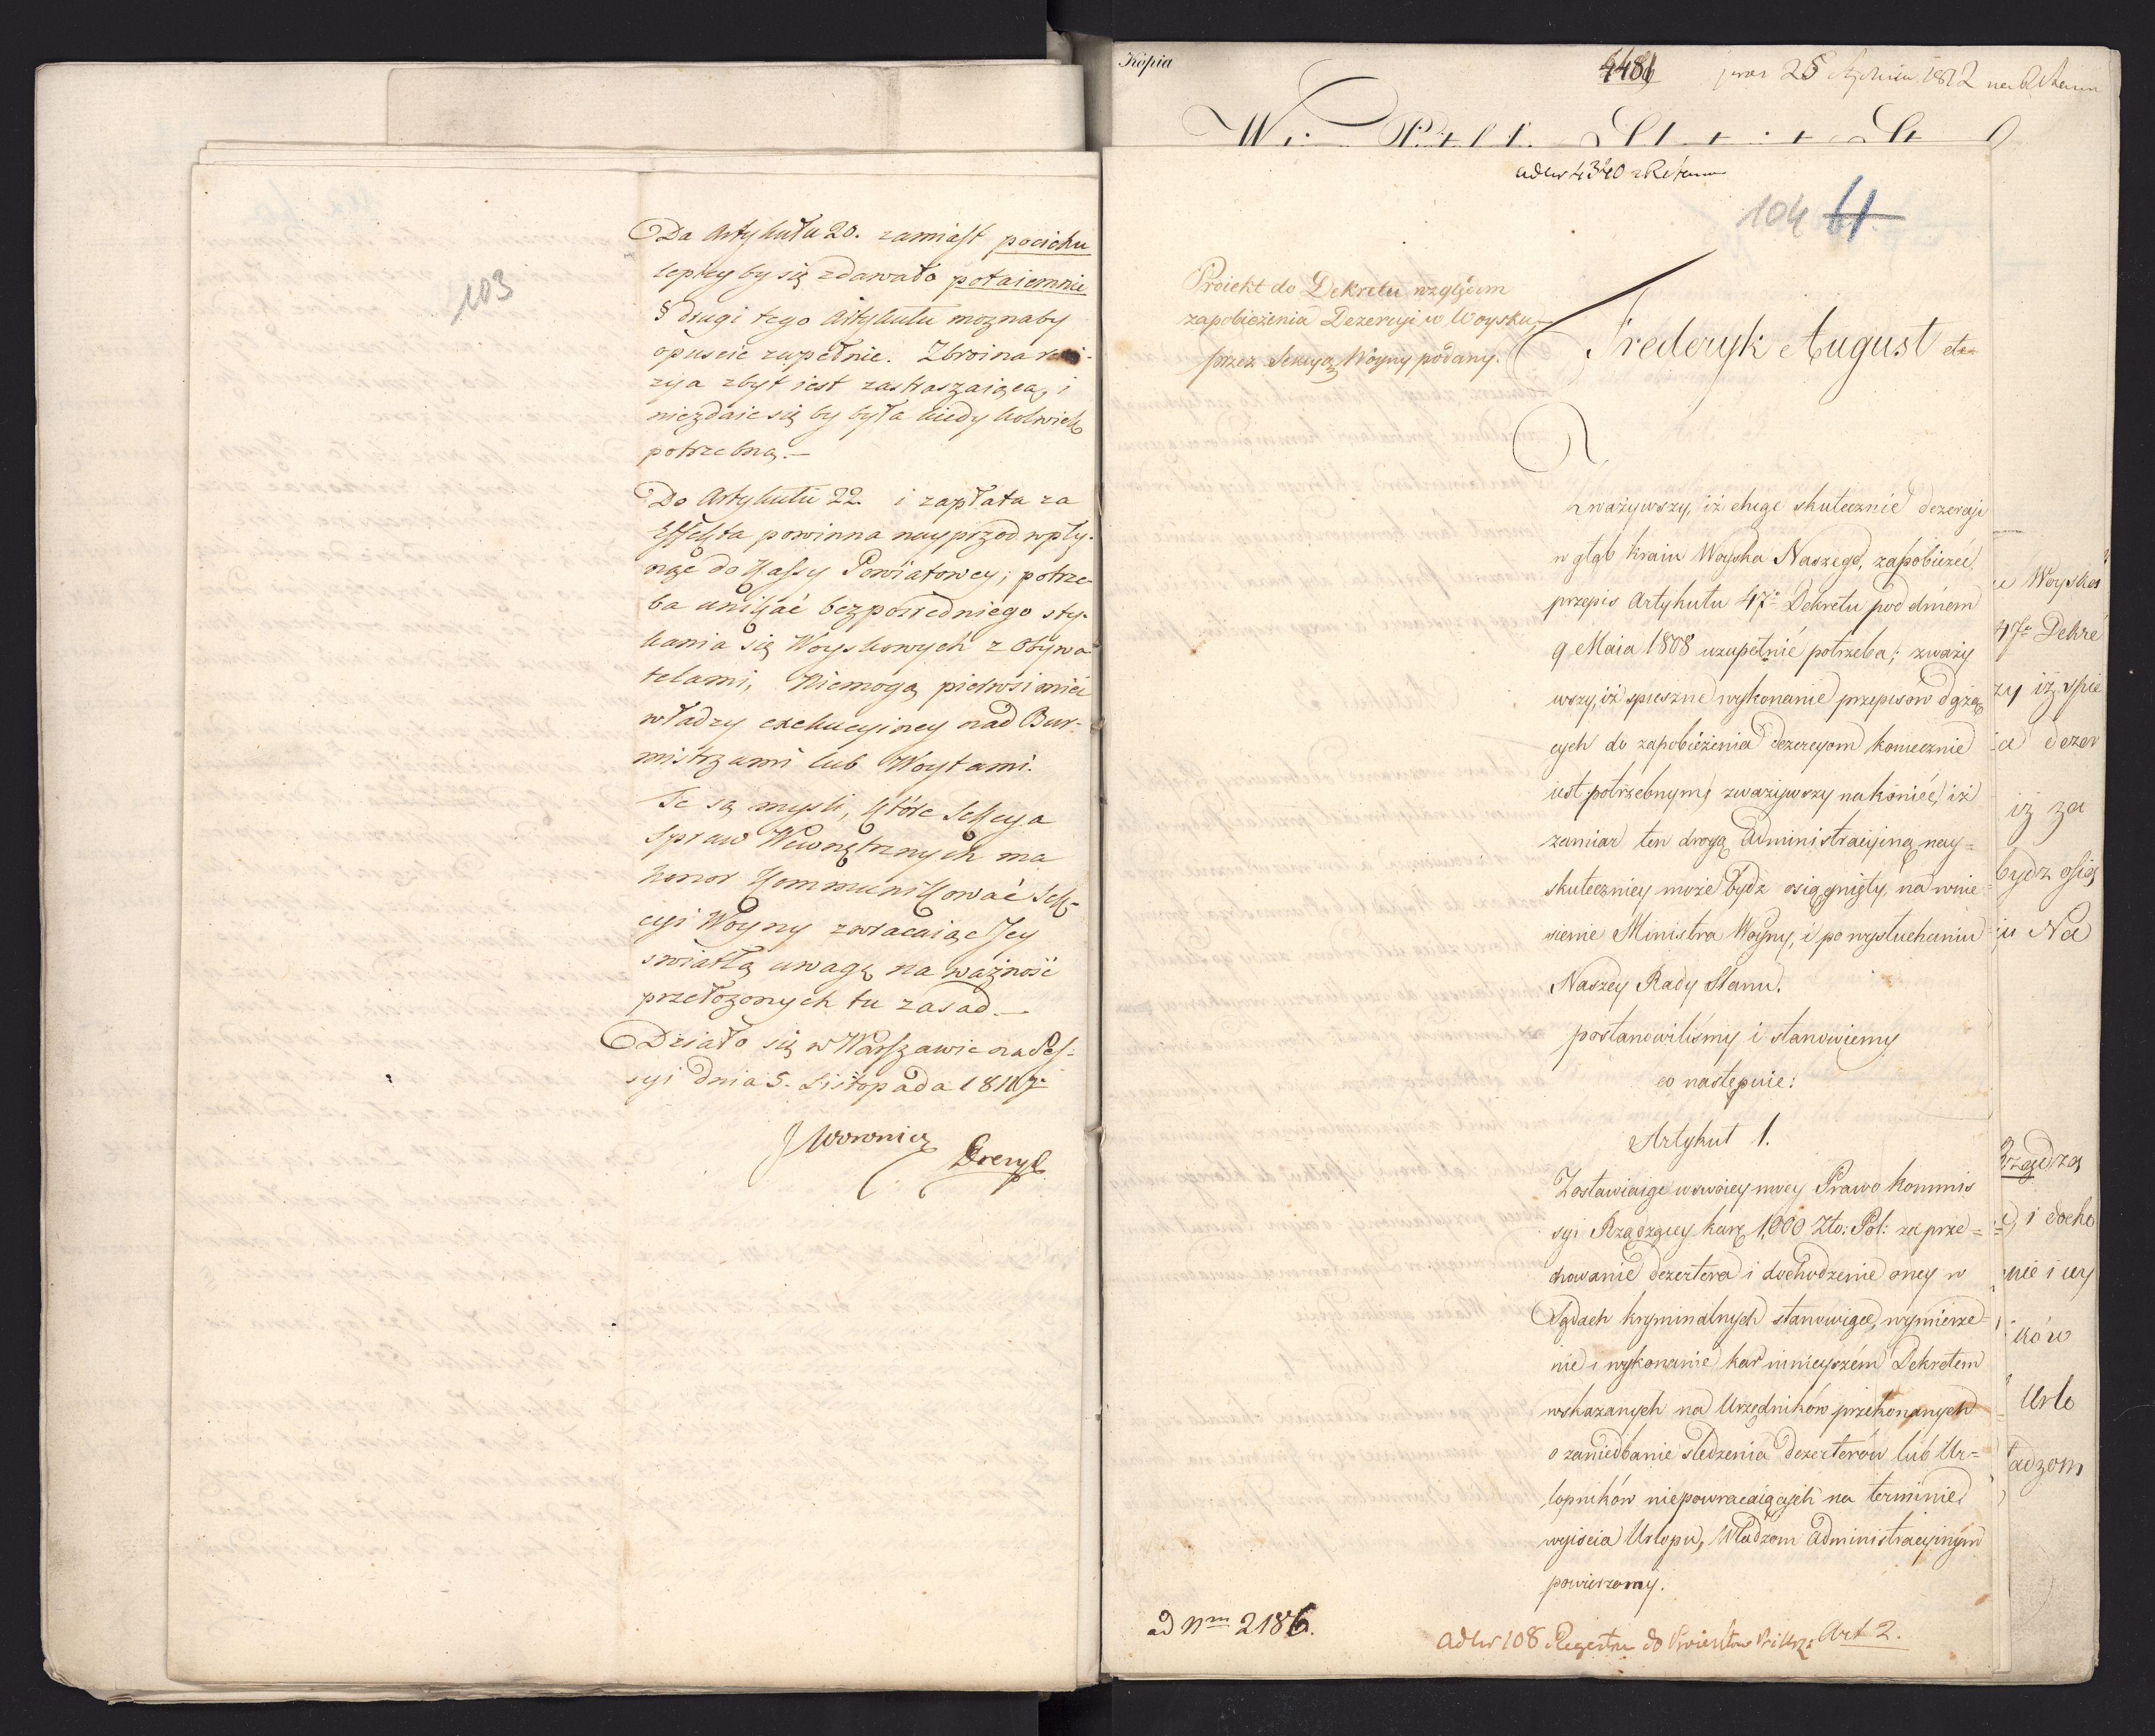 103
Do Artykułu 20. zamiast pocichu
lepiey by się zdawało potaiemnie
§ drugi tego Artykułu moznaby
opuscić zupełnie. Zbroina rewi-
zya zbyt iest zastraszaiąca, i
niezdaie się by była kiedy kolwiek
potrzebną.—
Do Artykułu 22. i zapłata za
Effekta powinna nayprzod wpły-
nąć do Kassy Powiatowey; potrze-
ba unikać bezposredniego sty-
kania się Woyskowych z Obywa-
telami, Niemogą pierwsi mieć
władzy exekucyiney nad Bur-
mistrzami lub Wóytami.
Te są mysli, które Sekcya
Spraw Wewnętrznych ma
honor Kommunikować Sek-
cyi Woyny zwracaiąc Jey
swiatłą uwagę na ważność
przełozonych tu zasad.—
Działo się w Warszawie na Ses-
syi dnia 5. Listopada 1811 r.
Kopia
4486
25 Stycznia 1812
ad Nr 4340
104 61
Proiekt do Dekretu względem
zapobieżenia Dezercyi w Woysku
przez Sekcyą Woyny podany.
Frederyk August etc
Zważywszy, iż chcąc skutecznie dezercyi
w głąb kraiu Woyska Naszego, zapobiezeć,
przepis Artykułu 47º Dekretu pod dniem
9 Maia 1808 uzupełnić potrzeba; zważy
wszy, iż spieszne wykonanie przepisów dążą
cych do zapobieżenia dezercyom koniecznie
iest potrzebnym; zważywszy nakoniec, iż
zamiar ten drogą Administracyiną nay=
skuteczniey może bydź osiągnięty, na wnie
sienie Ministra Woyny, i po wysłuchaniu
Naszey Rady Stanu.
postanowiliśmy i stanowiemy
co następuie:
Artykuł 1.
Zostawiaiąc w swoiey mocy Prawo Kommis
syi Rządzącey karę 1,000 Zło: Pol: za prze=
chowanie dezertera i dochodzenie oney w
Sądach kryminalnych stanowiące, wymierze=
nie i wykonanie kar ninieyszém Dekretem
wskazanych na Urzędników przekonanych
o zaniedbanie sledzenia dezerterów lub Ur=
lopników niepowracaiących na terminie
wyiścia Urlopu, Władzom Administracyinym
powierzamy.
ad Nrm 2186.
ad Nr 108 Art 2.
Woyska
47º Dekre
zy iż spie
dezer
iż za
bydz osią
iu Na
Rządzą
i docho
nie i wy
ików
Urlo
ładzom